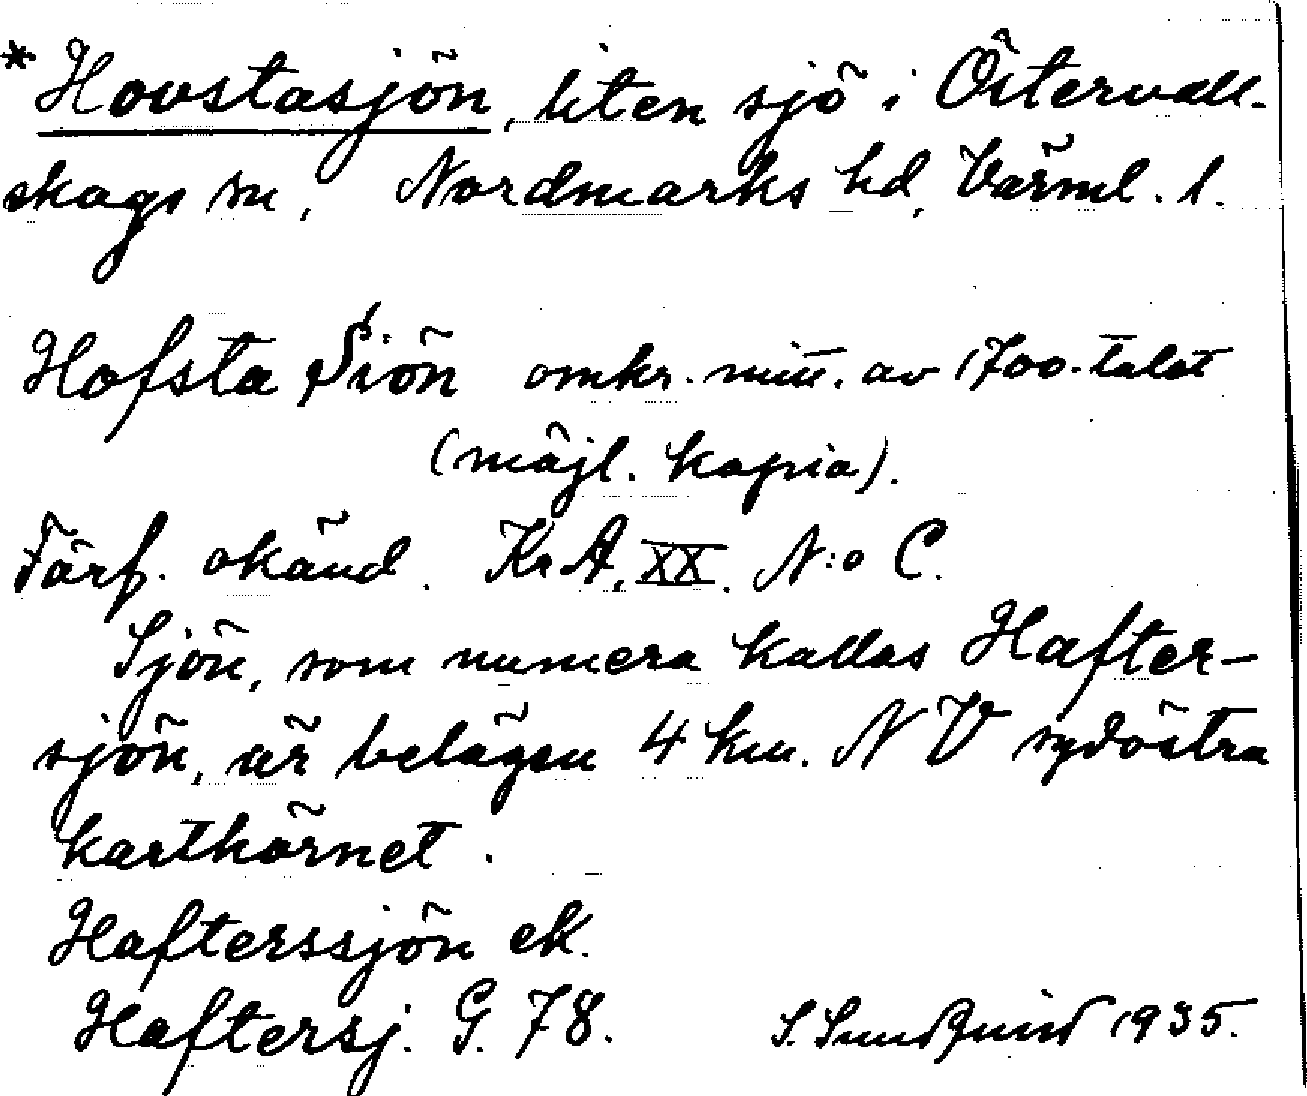 *Hovstasjön, liten sjö i Östervall-
skogs sn, Nordmarks hd, Värml. l.
Hofsta Siön omkr. mitt. av 1700-talet
(möjl. kopia).
Förf. okänd. KrA, XX. N:o C.
Sjön, som numera kallas Hafter-
sjön, är belägen 4 km. NV sydöstra
karthörnet.
Hafterssjön ek.
Haftersj. G. 78. S. Sundqvist 1935.